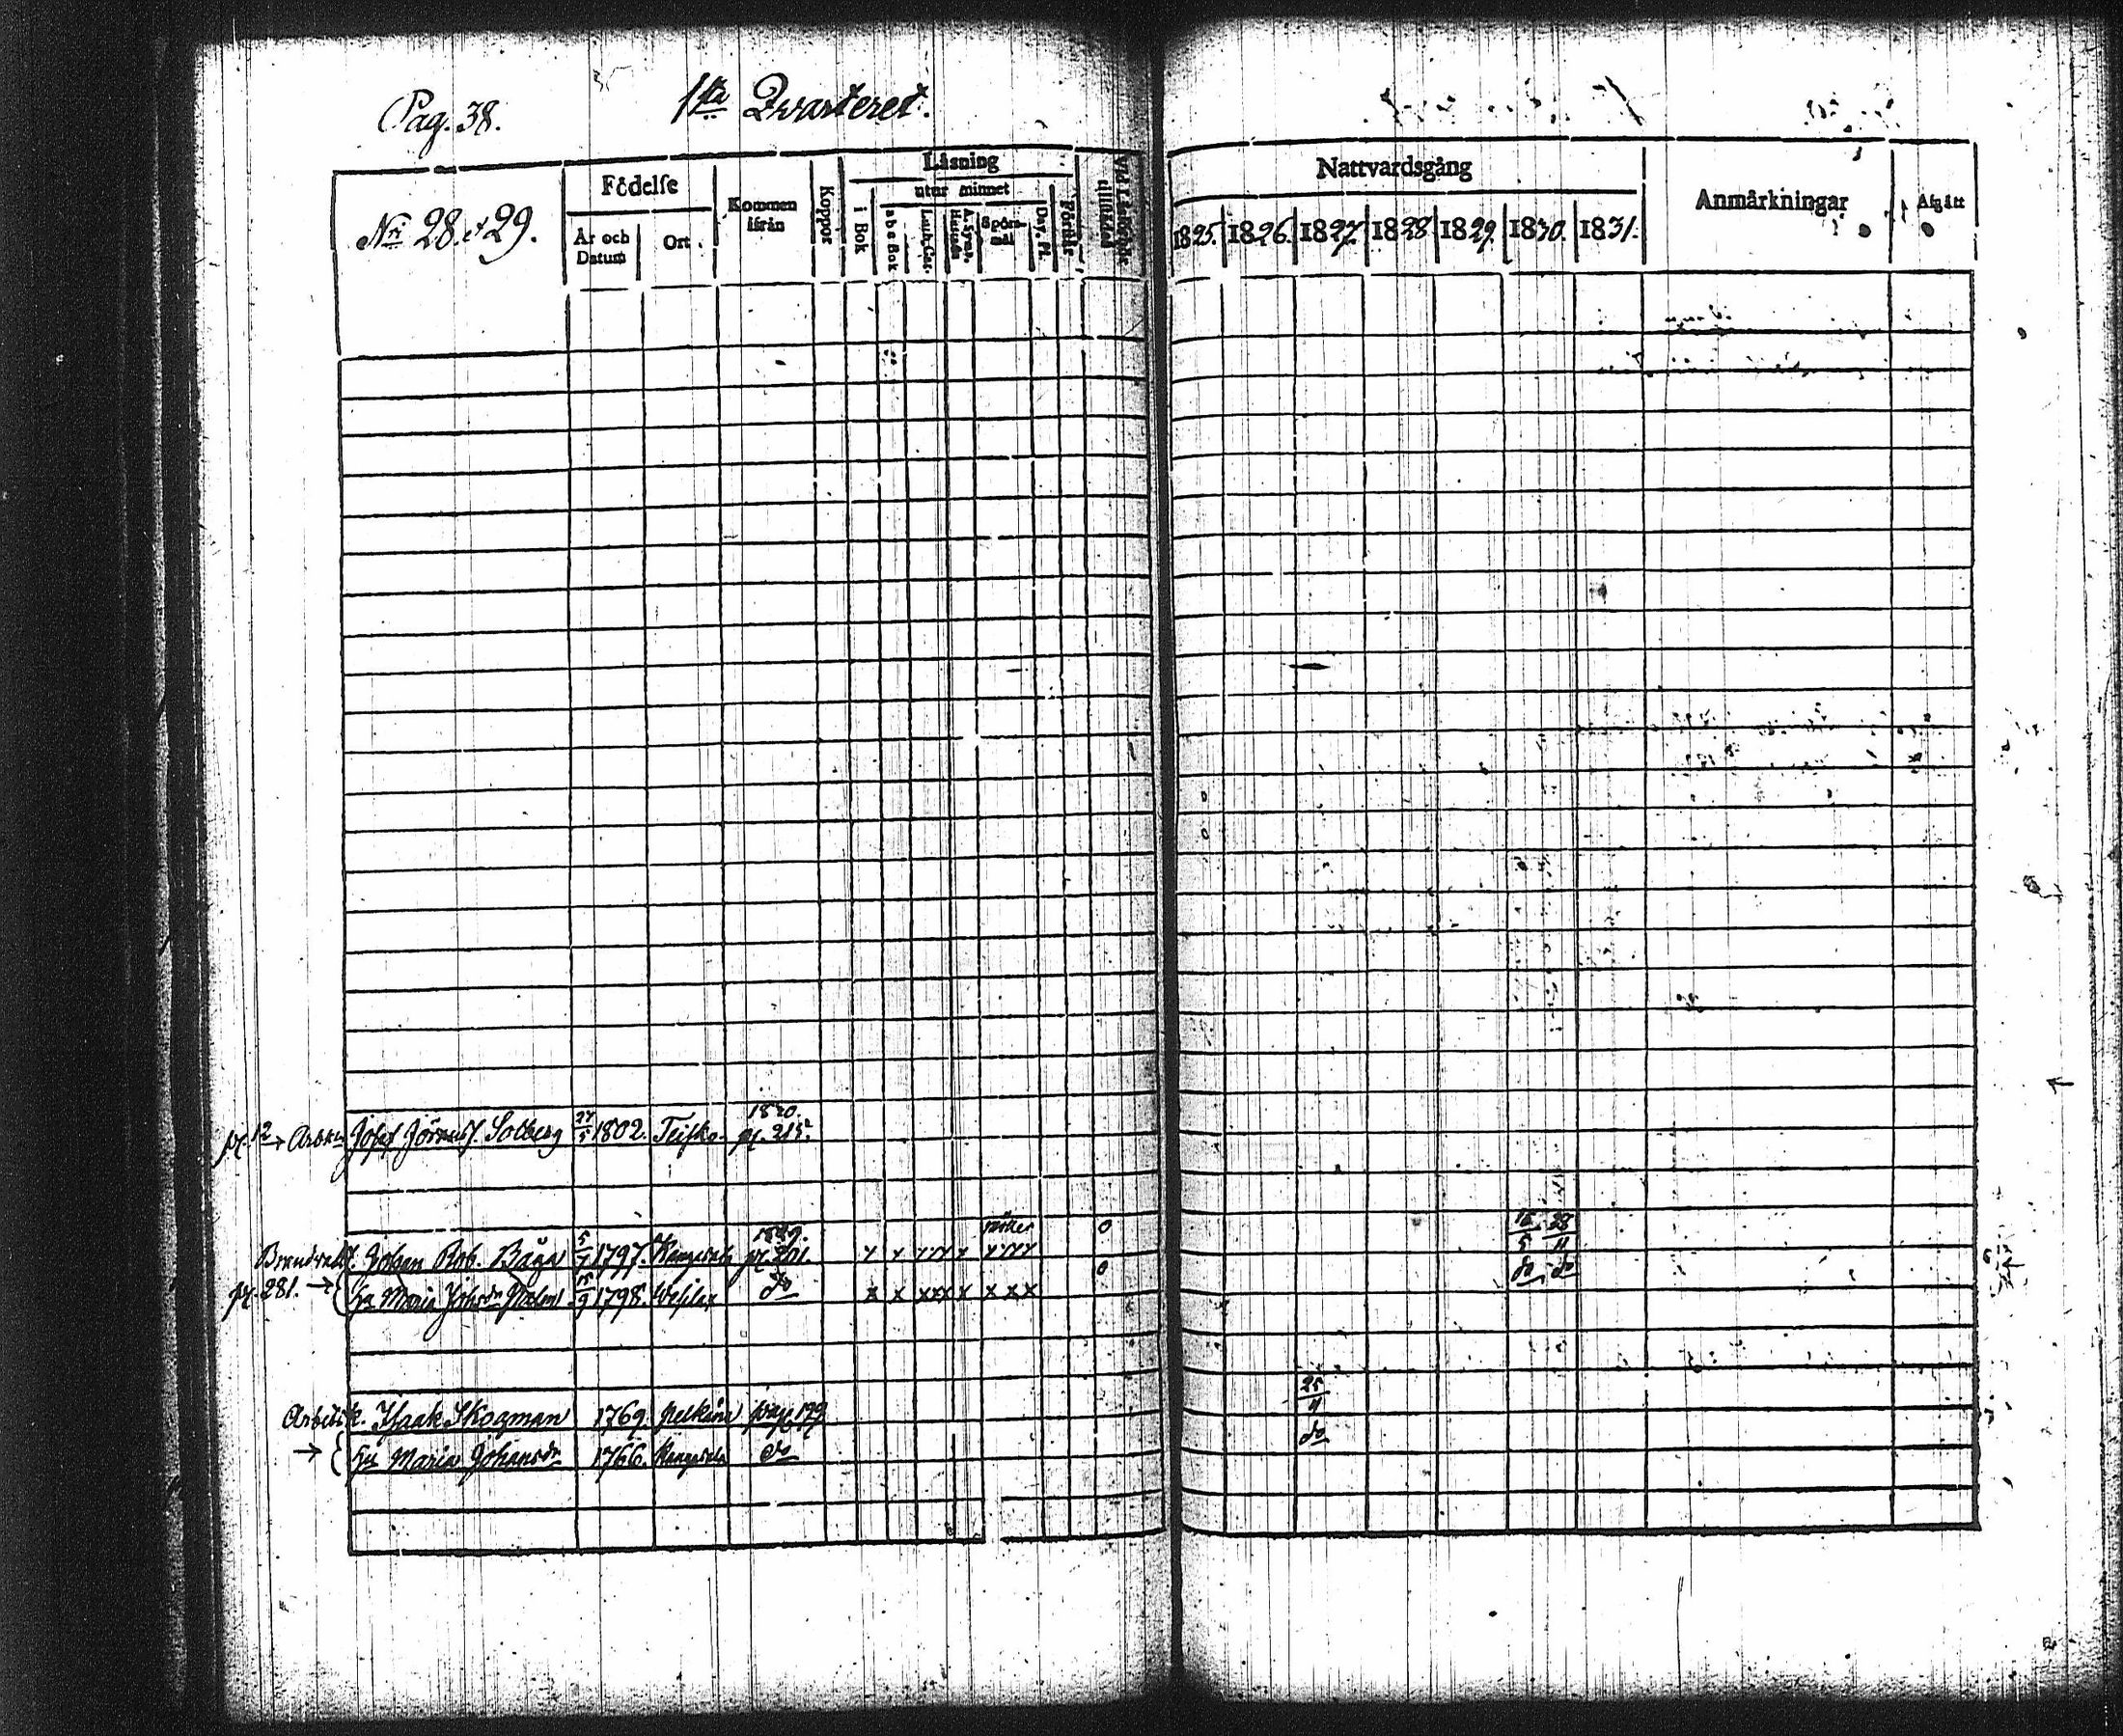 Pag. 38. 1sta Qvarteret.
No 28. & 29.
Födelse
År och Datum
Ort
Kommen ifrån
Koppor
Läsning
i Bok
utur minnet
a b c Bok
Luth. Cat.
A. Symb. Hustafla
Spörsmål
Dav. Ps.
Förstår
Vid Läsförhör tillstädes
Nattvardsgång
1825. 1826. 1827. 1828 1829. 1830. 1831.
Anmärkningar
Afgått
1830.
pg. 12 → Arbkn Josef Jöranss. Solberg 27/5 1802. Teisko pg. 215.
1829. 0 15/5 28/11
Johan Rob. Båga 5/7 1797. Kangasala pg. 201. x x xxx x xxx
pg. 281. → hu Maria Johsdr Malm 15/9 1798. Wesilax do x x xxx x x x x 0 do do
Arbetsk. Isaak Skogman 1769. Pelkäne page 199 25/11
→ hu Maria Johansdr 1766. Kangasala do do